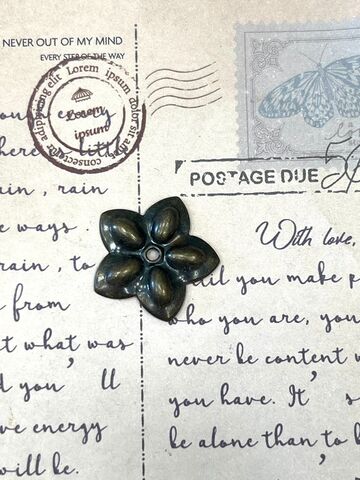 NEVER OUT OF MY MIND
EVERY STEP OF THE WAY
consectetur adipiscing elit Lorem ipsum dolor sit amet,
Lorem
ipsum
rain, rain
e ways.
rain, to
from
t what was
d you'll
ve energy
will be.
POSTAGE DUE
With love,
til you make p
who you are, you
never be content w
you have. It's
be alone than to b